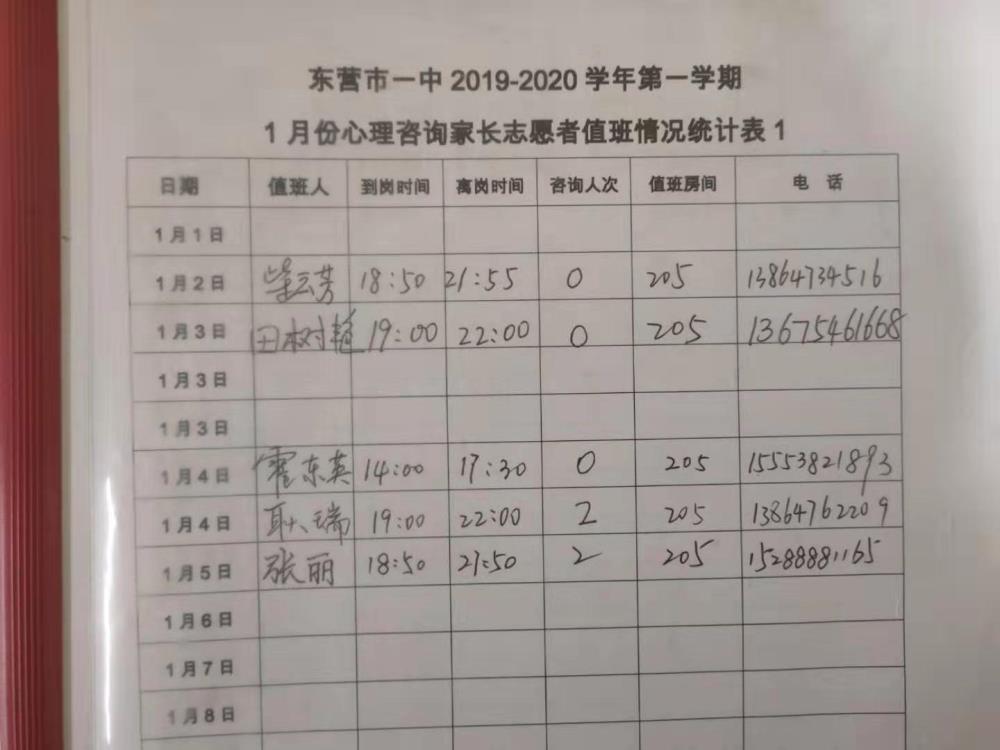 东营市一中 2019-2020 学年第一学期
1 月份心理咨询家长志愿者值班情况统计表 1
日期 值班人 到岗时间 离岗时间 咨询人次 值班房间 电 话
1月1日
1月2日 柴云芳 18:50 21:55 0 205 13864734516
1月3日 田树艳 19:00 22:00 0 205 13675461668
1月3日
1月3日
1月4日 霍东英 14:00 17:30 0 205 15553821893
1月4日 耿瑞 19:00 22:00 2 205 13864762209
1月5日 张丽 18:50 21:50 2 205 15288881165
1月6日
1月7日
1月8日